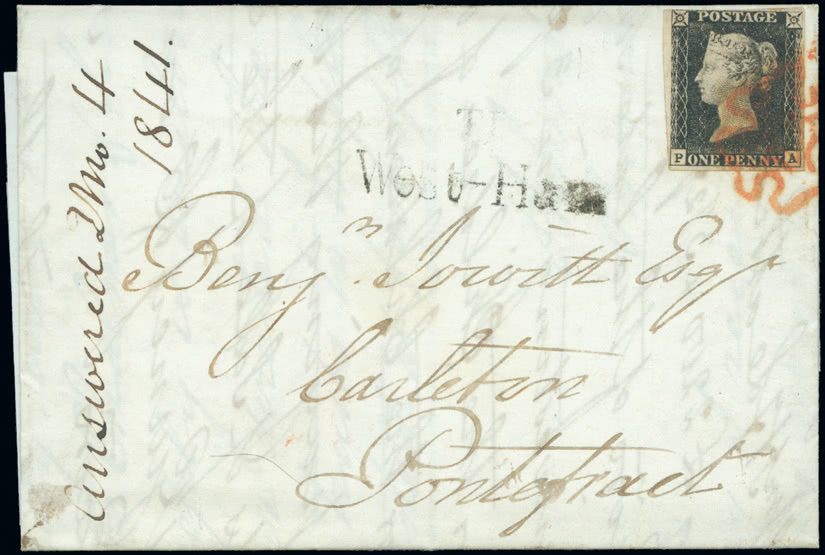 POSTAGE
P ONE PENNY A
West-Ham
Benjn. Jowitt Esqr
Carleton
Pontefract
Answered 2 Mo. 4
1841.